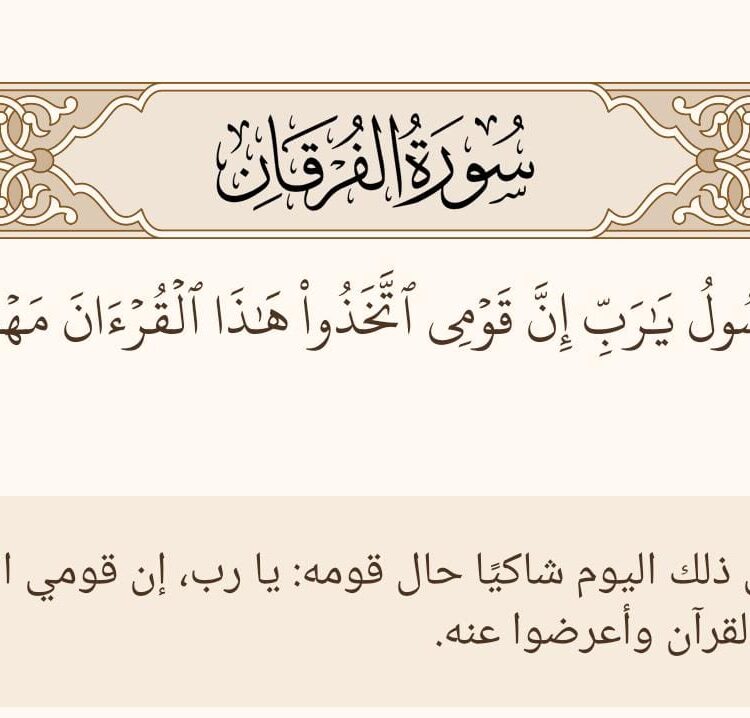 سُورَةُ الفُرْقَانِ
يَـٰرَبِّ إِنَّ قَوْمِى ٱتَّخَذُوا۟ هَـٰذَا ٱلْقُرْءَانَ
ذلك اليوم شاكيًا حال قومه: يا رب، إن قومي
وأعرضوا عنه.